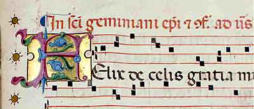 In sci geminiani epi et 9f. ad uns
Felix de celis gratia m